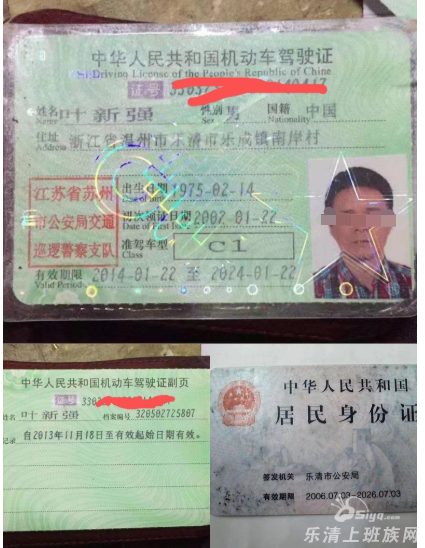 中华人民共和国机动车驾驶证
Driving License of the People's Republic of China
证号
姓名 叶新强 性别 男 国籍 中国
Name Sex Nationality
住址 浙江省温州市乐清市乐成镇南岸村
Address
江苏省苏州
市公安局交通
巡逻警察支队
出生日期 1975-02-14
初次领证日期 2002-01-22
Date of First Issue
准驾车型 C1
Class
有效期限 2014-01-22 至 2024-01-22
Valid Period
中华人民共和国机动车驾驶证副页
证号
姓名 叶新强 档案编号 320502725807
记录 自2013年11月18日至有效起始日期有效。
中华人民共和国
居民身份证
签发机关 乐清市公安局
有效期限 2006.07.03-2026.07.03
乐清上班族网